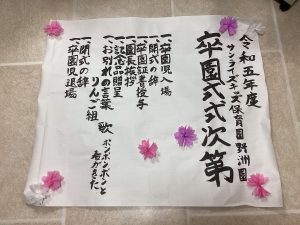 令和五年度
サンライズキッズ保育園 野洲園
卒園式式次第
一、卒園児入場
一、開式の辞
一、卒園証書授与
一、園長挨拶
一、記念品贈呈
一、お別れの言葉
りんご組
歌 ポンポンポンと春がきた
一、閉式の辞
一、卒園児退場